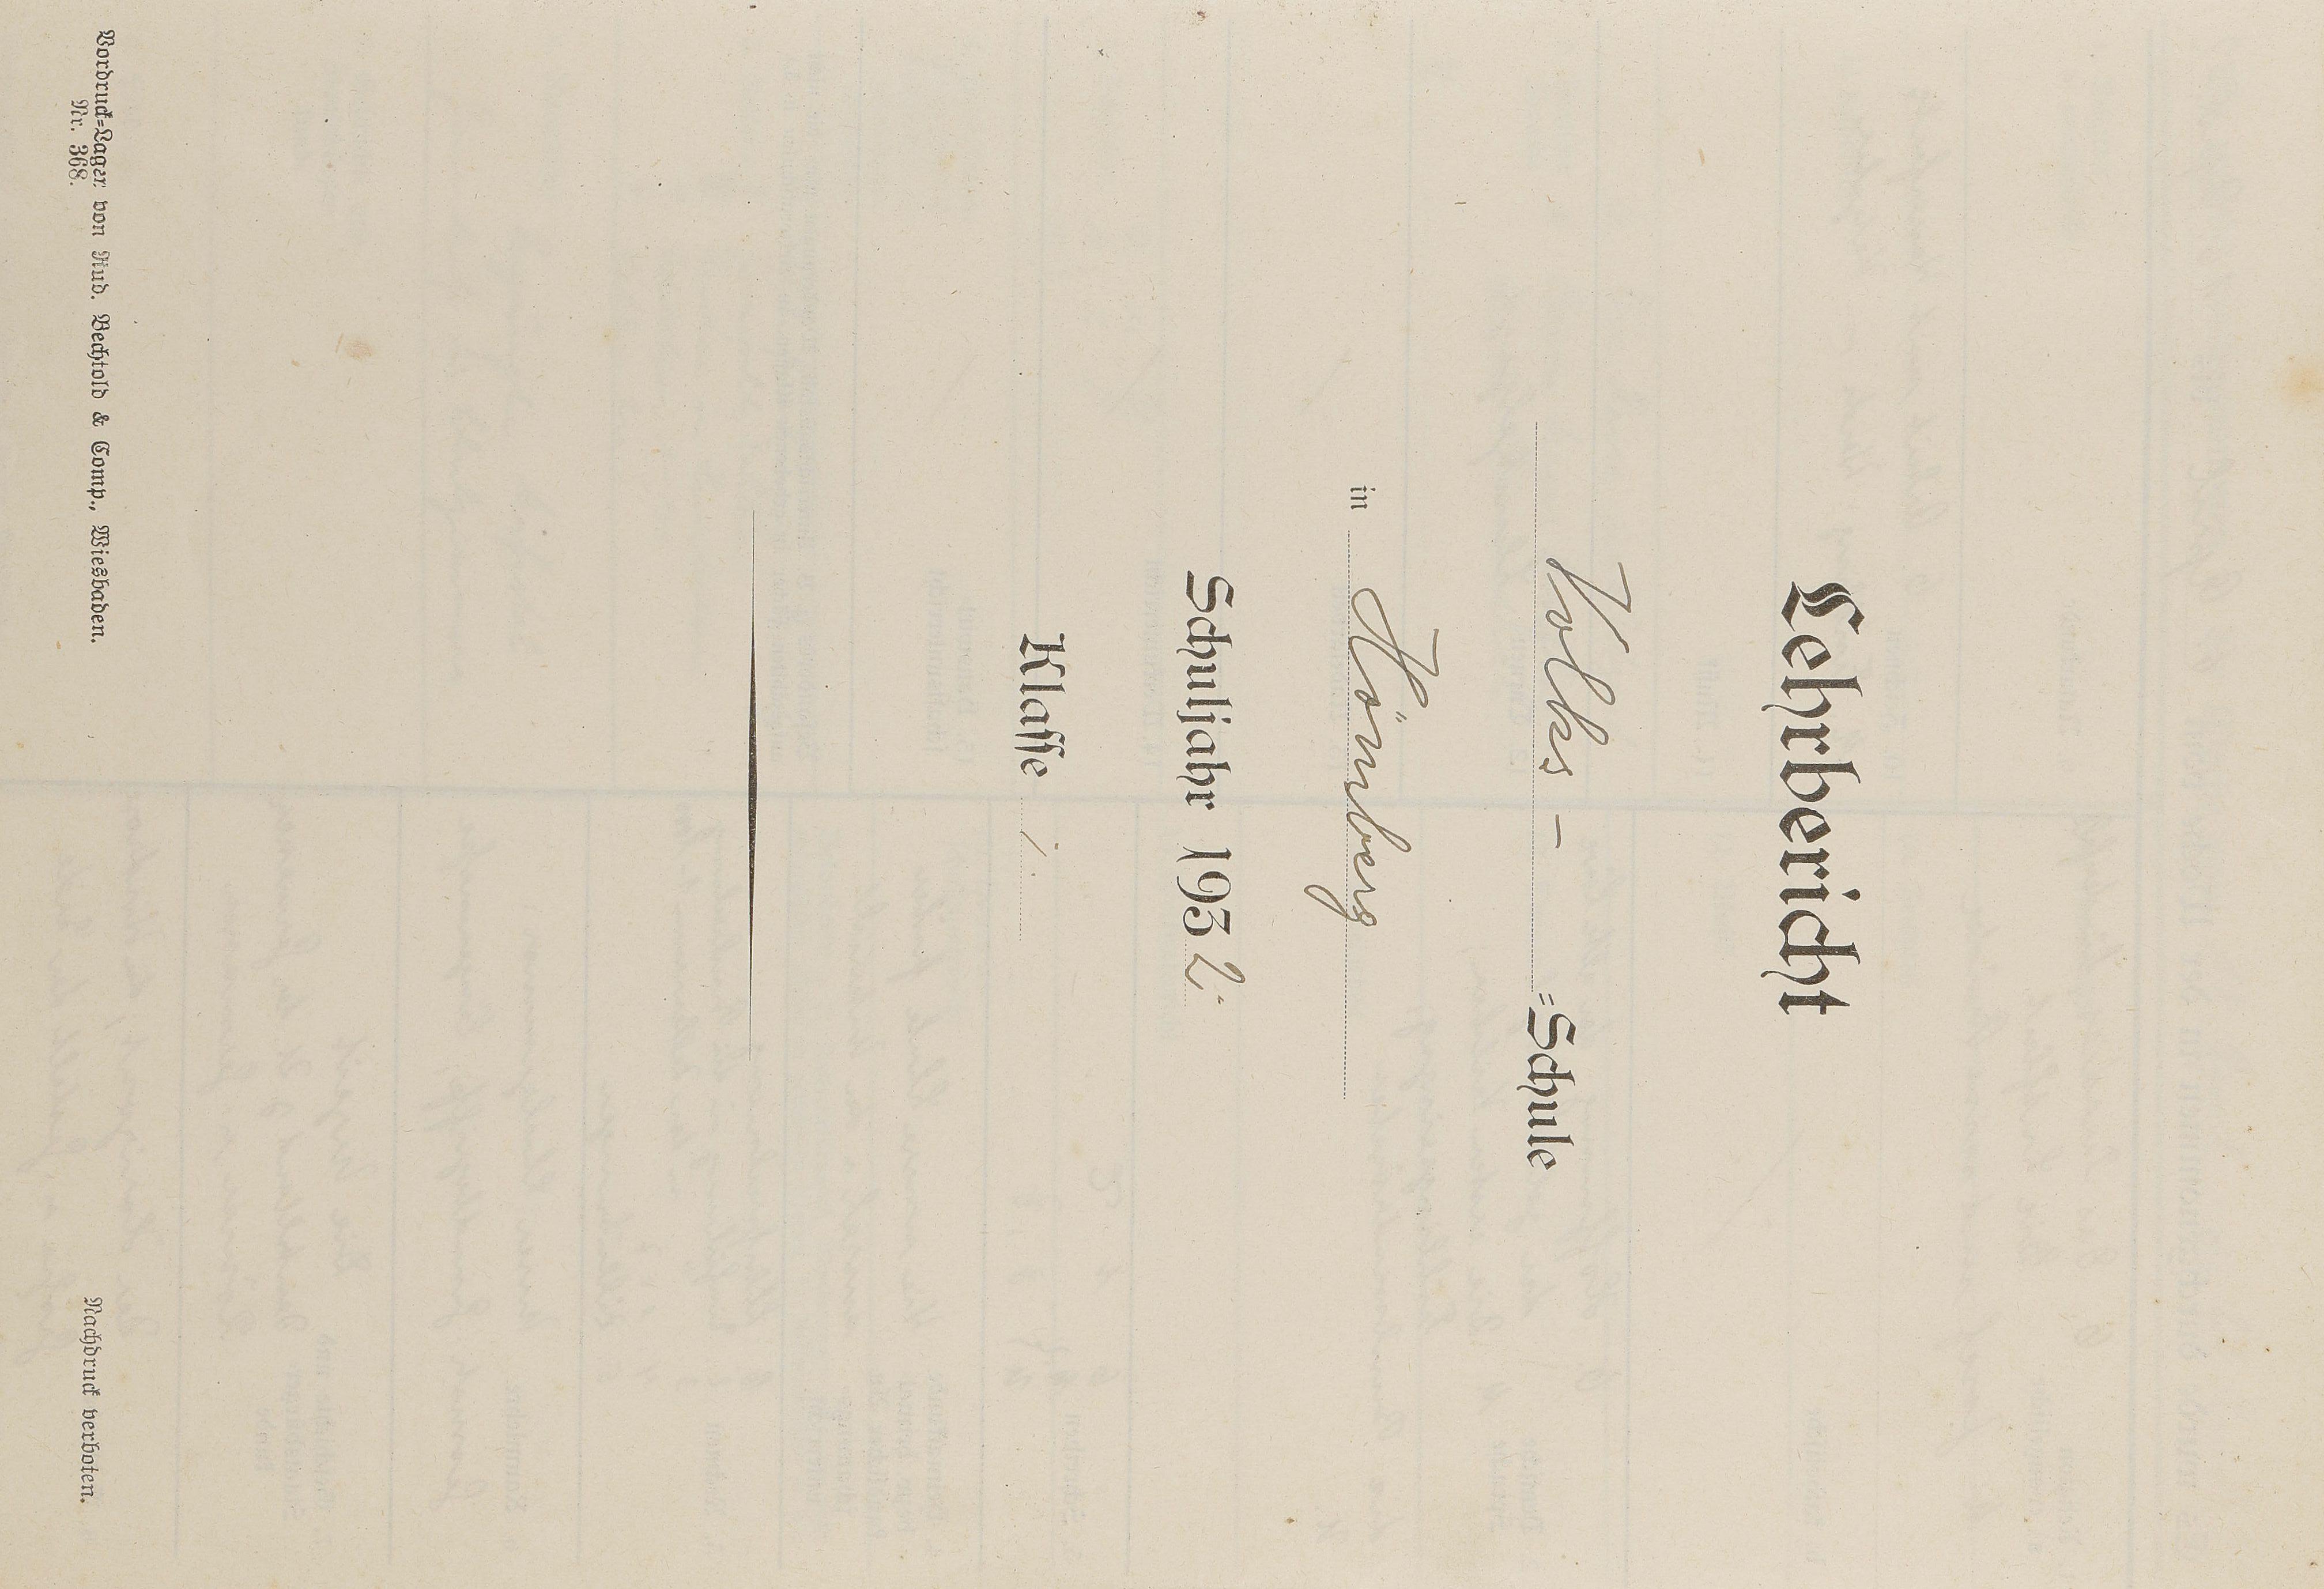 Lehrbericht
Volks- =Schule
in Hömberg
Schuljahr 1932.
Klasse 1.
Vordruck=Lager von Rud. Bechtold & Comp., Wiesbaden.
Nr. 368.
Nachdruck verboten.